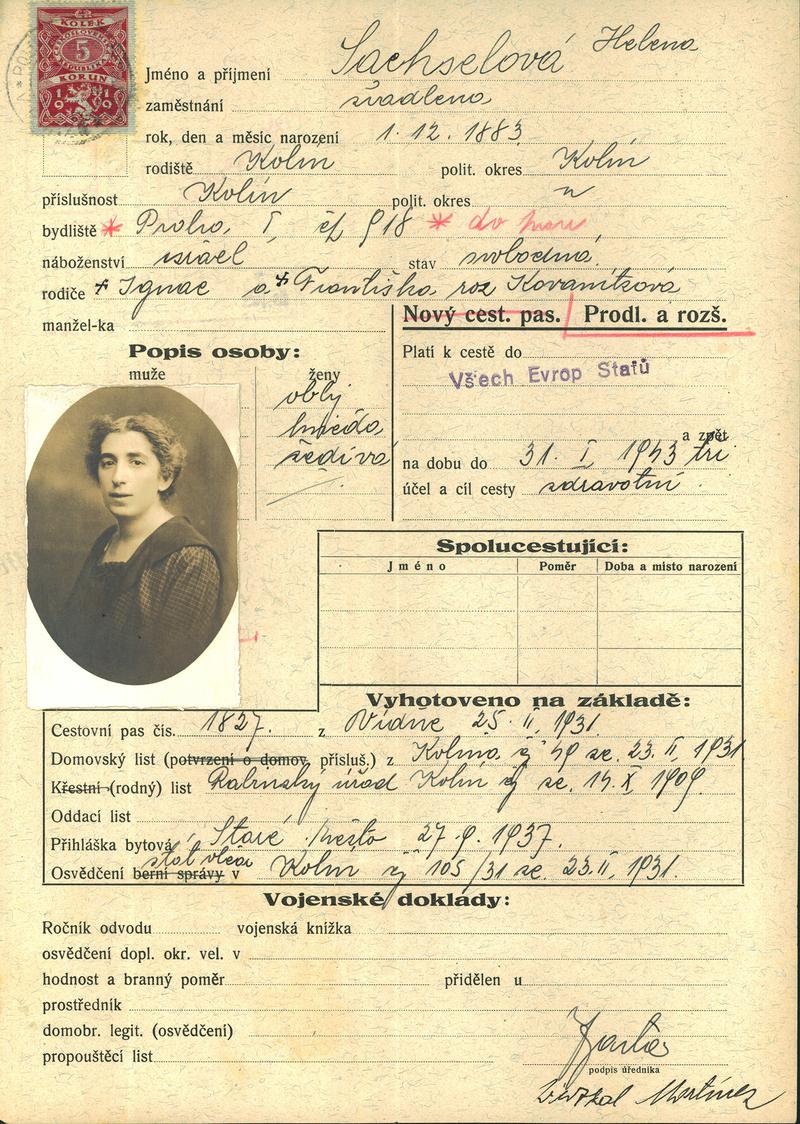 KOLEK
5
KORUN
1919
Jméno a příjmení Sachselová Helena
zaměstnání švadlena
rok, den a měsíc narození 1. 12. 1883
rodiště Kolín polit. okres Kolín
příslušnost Kolín polit. okres "
bydliště * Praha, I, čp 918 * do
náboženství israel stav svobodná
rodiče + Ignác a + Františka roz Kovanitzová
manžel-ka
Nový cest. pas. Prodl. a rozš.
Popis osoby:
muže ženy
oblý
hnědá
šedivá
Platí k cestě do
Všech Evrop Statů
a zpět
na dobu do 31. I 1943 tři
účel a cíl cesty zdravotní.
Spolucestující:
Jméno Poměr Doba a místo narození
Vyhotoveno na základě:
Cestovní pas čís. 1827. z Vídně 25. II. 1931.
Domovský list (potvrzení o domov. přísluš.) z Kolína čj 49 ze. 23. II. 1931
Křestní (rodný) list Rabínský úřad Kolín čj ze. 14. X 1909.
Oddací list
Přihláška bytová Staré Město 27. 9. 1937.
Osvědčení berní správy v Kolín čj 105/31 ze. 23. II. 1931.
Vojenské doklady:
Ročník odvodu vojenská knížka
osvědčení dopl. okr. vel. v
hodnost a branný poměr přidělen u
prostředník
domobr. legit. (osvědčení)
propouštěcí list
podpis úředníka